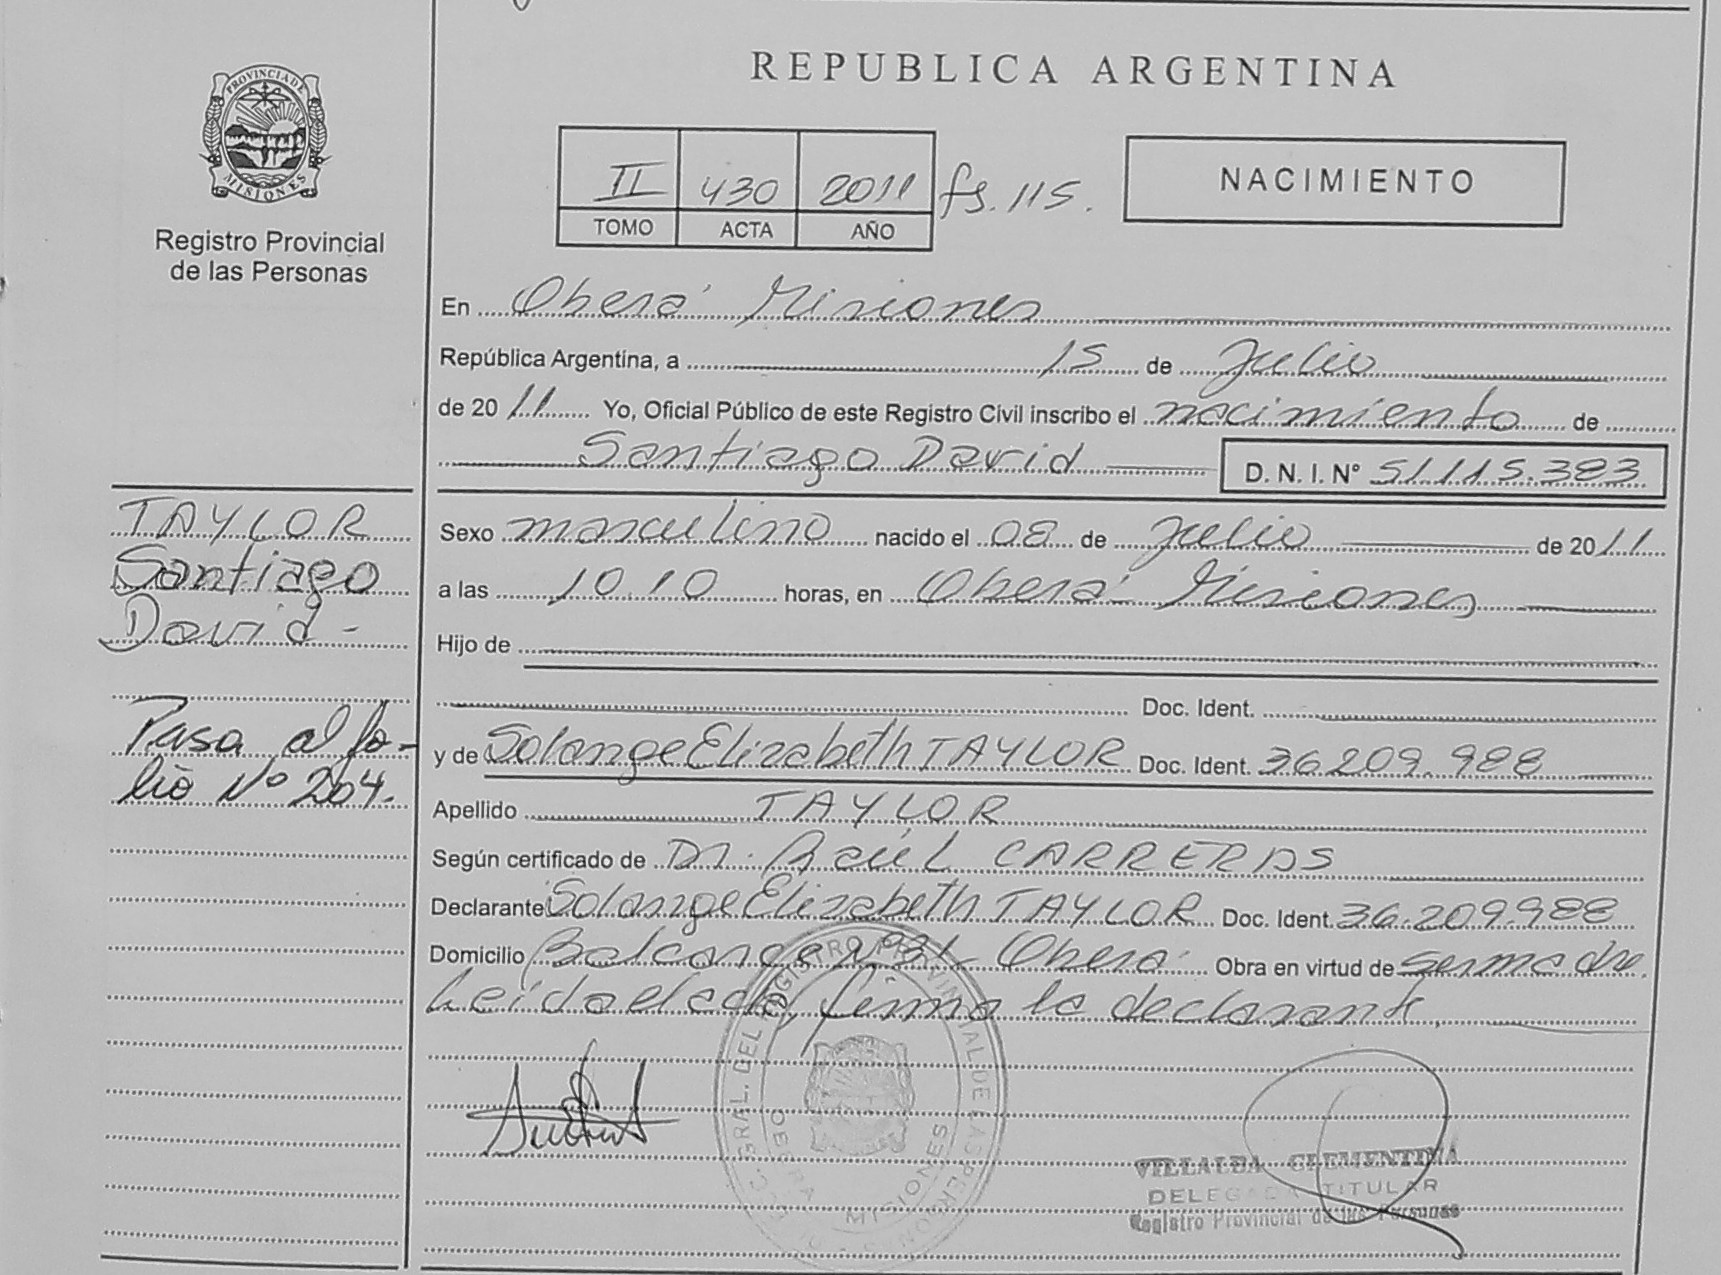 REPUBLICA ARGENTINA
PROVINCIA DE
MISIONES
Registro Provincial
de las Personas
II 430 2011 fs. 115.
TOMO ACTA AÑO
NACIMIENTO
En Oberá Misiones
República Argentina, a 15 de Julio
de 2011 Yo, Oficial Público de este Registro Civil inscribo el nacimiento de
Santiago David D. N. I. Nº 51.115.383
TAYLOR
Santiago
David -
Pasa al fo-
lio Nº 204.
Sexo masculino nacido el 08 de Julio de 2011
a las 10.10 horas, en Oberá Misiones
Hijo de
Doc. Ident.
y de Solange Elizabeth TAYLOR Doc. Ident. 36.209.988
Apellido TAYLOR
Según certificado de Dr. Raúl CARRERAS
Declarante Solange Elizabeth TAYLOR Doc. Ident. 36.209.988
Domicilio Balcarce Nº 31 Oberá Obra en virtud de ser madre.
Leída el acta, firma la declarante.
GRAL. DEL REGISTRO PROVINCIAL DE LAS PERSONAS
OBERA MISIONES
VILLALBA CLEMENTINA
DELEGADA TITULAR
Registro Provincial de las Personas